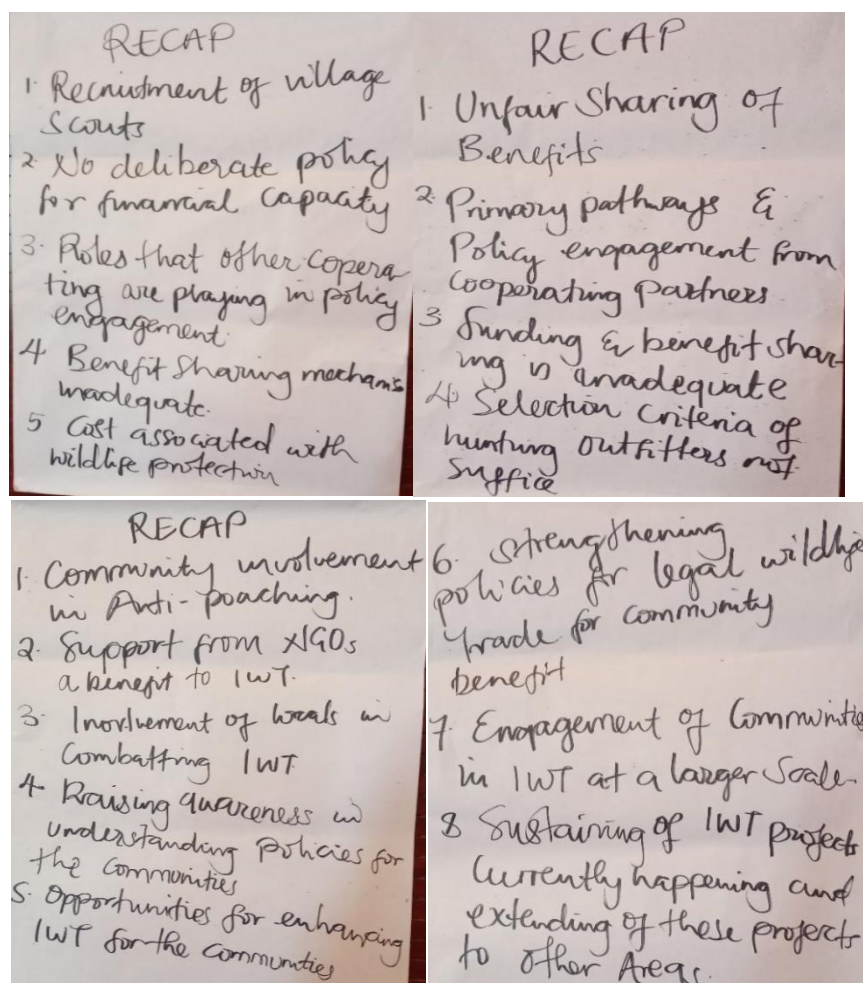 RECAP
1. Recruitment of village
Scouts
2. No deliberate policy
for financial capacity
3. Roles that other copera
ting are playing in policy
engagement.
4 Benefit Sharing mechanis
inadequate.
5 Cost associated with
wildlife protection
RECAP
1. Unfair Sharing of
Benefits
2. Primary pathways &
Policy engagement from
Cooperating Partners
3 funding & benefit shar-
ing is inadequate
4. Selection Criteria of
hunting outfitters not
Suffice
RECAP
1. Community involvement
in Anti-poaching.
2. Support from NGOs
a benefit to IWT.
3. Involvement of locals in
Combatting IWT
4. Raising awareness in
understanding policies for
the communities
5. Opportunities for enhancing
IWT for the communities
6. Strengthening
policies for legal wildlife
trade for community
benefit
7. Engagement of Communitie
in IWT at a larger Scale.
8 Sustaining of IWT projects
Currently happening and
extending of these projects
to other Areas.